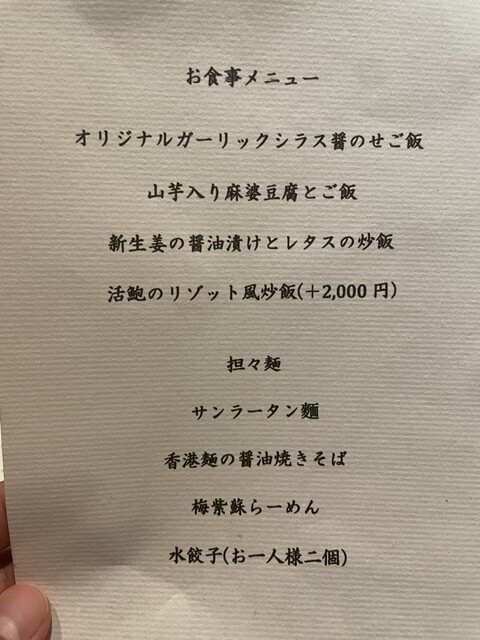 お食事メニュー
オリジナルガーリックシラス醤のせご飯
山芋入り麻婆豆腐とご飯
新生姜の醤油漬けとレタスの炒飯
活鮑のリゾット風炒飯(+2,000円)
担々麺
サンラータン麺
香港麺の醤油焼きそば
梅紫蘇らーめん
水餃子(お一人様二個)